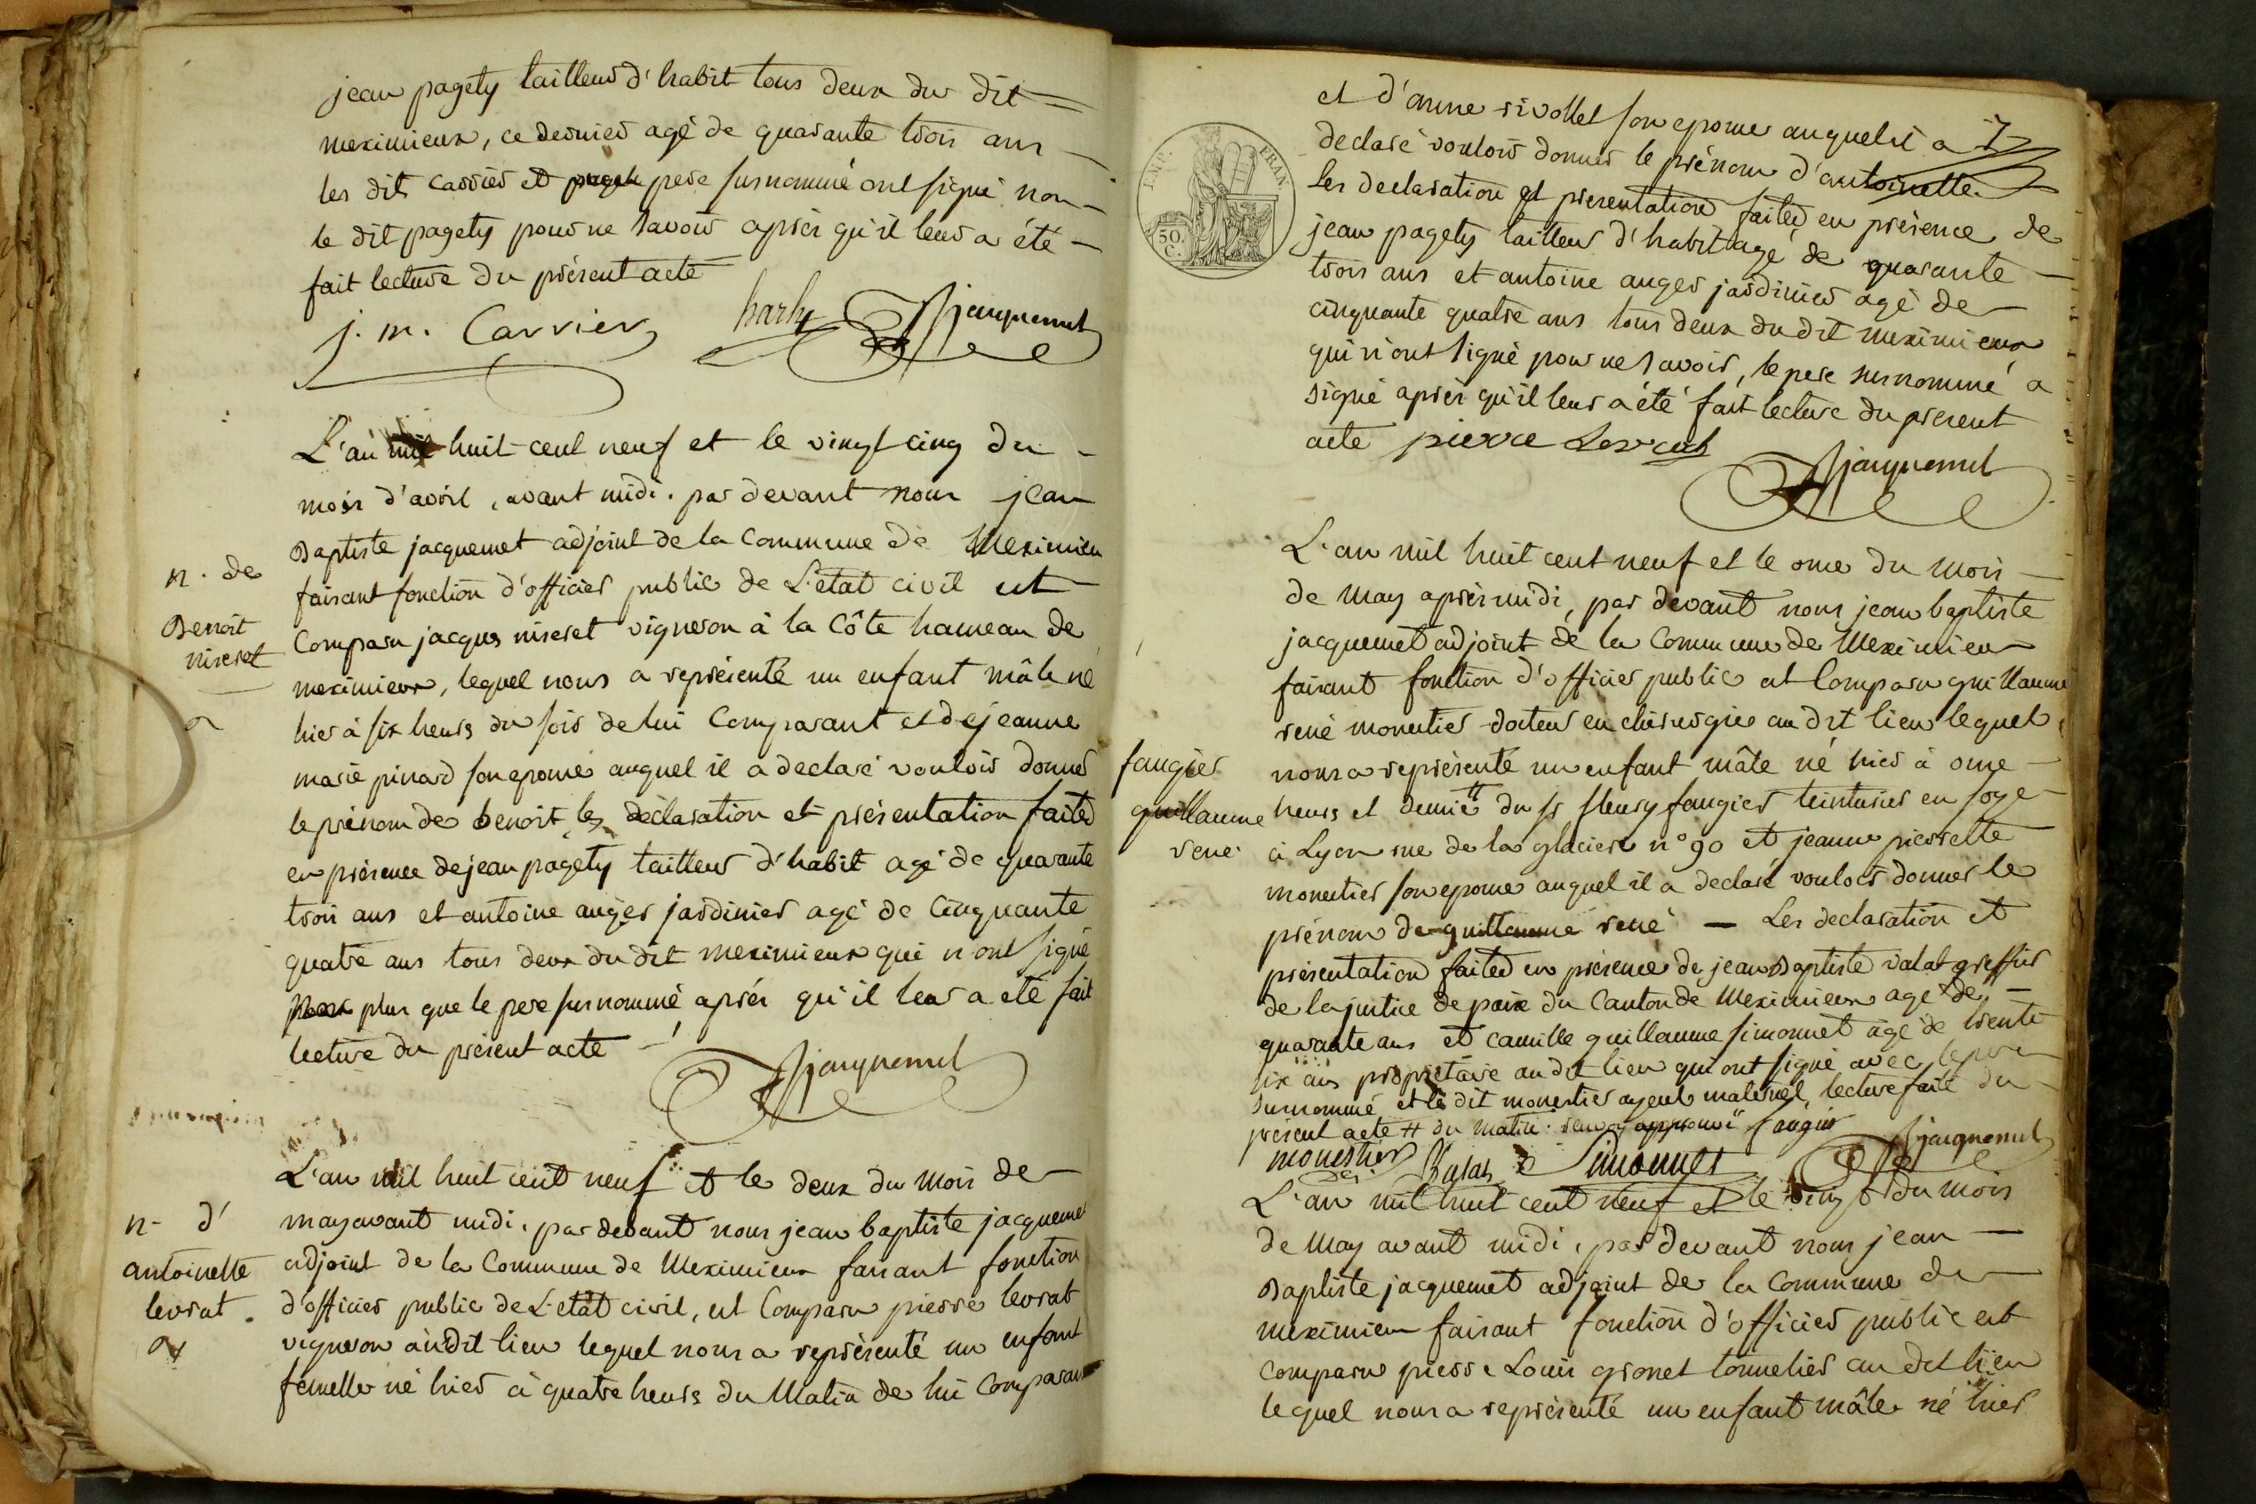 jean pagety tailleur d'habit tous deux du dit
meximieux, ce dernier agé de quarante trois ans
les dits carrier et pere surnommé ont signé non
le dit pagety pour ne savoir après qu'il leur a été
fait lecture du présent acte
j. m. Carrier harly Jjacquemet
L'an mil huit cent neuf et le vingt cinq du
mois d'avril, avant midi. par devant nous jean
Baptiste jacquemet adjoint de la Commune de Meximieu
n. de
Benoit
niseret
faisant fonction d'officier public de L'état civil est
Comparu jacques niseret vigneron à la Côte hameau de
meximieux, lequel nous a représenté un enfant mâle né
hier à six heurs du soir de lui Comparant et de jeanne
marie pinard son epouse auquel il a declaré vouloir donner
le prénom de benoit les déclaration et présentation faites
en présence de jean pagety tailleur d'habit agé de quarante
trois ans et antoine auger jardinier agé de Cinquante
quatre ans tous deux du dit meximieux qui n'ont signé
plus que le pere surnommé après qu'il leur a été fait
lecture du présent acte
Jjacquemet
L'an mil huit cent neuf et le deux du mois de
n. d'
antoinette
levrat.
may avant midi. par devant nous jean baptiste jacquemet
adjoint de la Commune de Meximieux faisant fonction
d'officier public de L'état civil, est Comparu pierre levrat
vigneron au dit lieu lequel nous a représenté un enfant
femelle né hier à quatre heurs du Matin de lui Comparant
IMP. FRAN.
50. C.
et d'anne rivollet son epouse auquel il a
declaré vouloir donner le prénom d'antoinette.
les declaration et presentation faites en présence de
jean pagety tailleur d'habit agé de quarante
trois ans et antoine auger jardinier agé de
cinquante quatre ans tous deux du dit meximieux
qui n'ont signé pour ne savoir, le pere surnommé a
signé après qu'il leur a été fait lecture du present
acte pierre Levrat
Jjacquemet
L'an mil huit cent neuf et le onze du mois
de May après midi, par devant nous jean baptiste
jacquemet adjoint de la Commune de Meximieu
faisant fonction d'officier public est Comparu guillaume
rené monestier docteur en chirurgie au dit lieu lequel
faugier
guillaume
rené.
nous a représenté un enfant mâle né hier à onze
heurs et demie # du sr fleury faugier teinturier en soye
à Lyon rue de la glaciere n° 90 et jeanne pierrette
monestier son epouse auquel il a declaré vouloir donner le
prénom de guillaume rené — Les declaration et
présentation faites en présence de jean Baptiste valat greffier
de la justice de paix du Canton de Meximieux agé de
quarante ans et camille guillaume simonnet âgé de trente
six ans propriétaire au dit lieu qui ont signé avec le pere
surnommé et le dit monestier ayeul maternel, lecture faite du
présent acte # du matin. renvoy approuvé faugier
monestier Valat Simonnet Jjacquemet
L'an mil huit cent neuf et le vingt du mois
de May avant midi, par devant nous jean
Baptiste jacquemet adjoint de la Commune de
meximieu faisant fonction d'officier public est
comparu pierre Louis gronet tonnelier au dit lieu
lequel nous a représenté un enfant mâle né hier